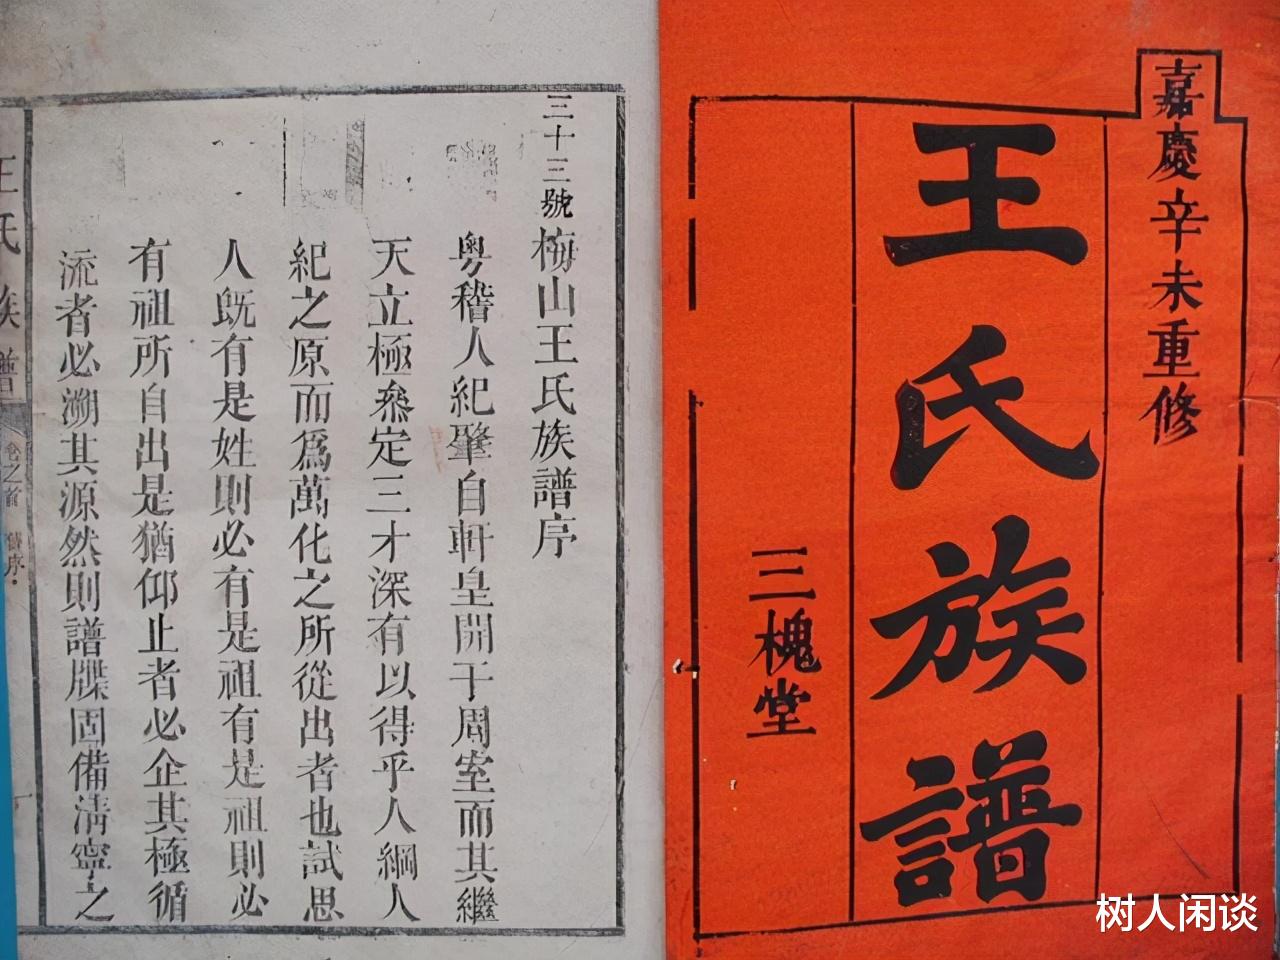 嘉慶辛未重修
王氏族譜
三槐堂
三十三號
梅山王氏族譜序
粵稽人紀肇自軒皇開于周室而其繼
天立極叅定三才深有以得乎人綱人
紀之原而爲萬化之所從出者也試思
人旣有是姓則必有是祖有是祖則必
有祖所自出是猶仰止者必企其極循
流者必溯其源然則譜牒固備清寧之
王氏族譜
卷之首
序
树人闲谈